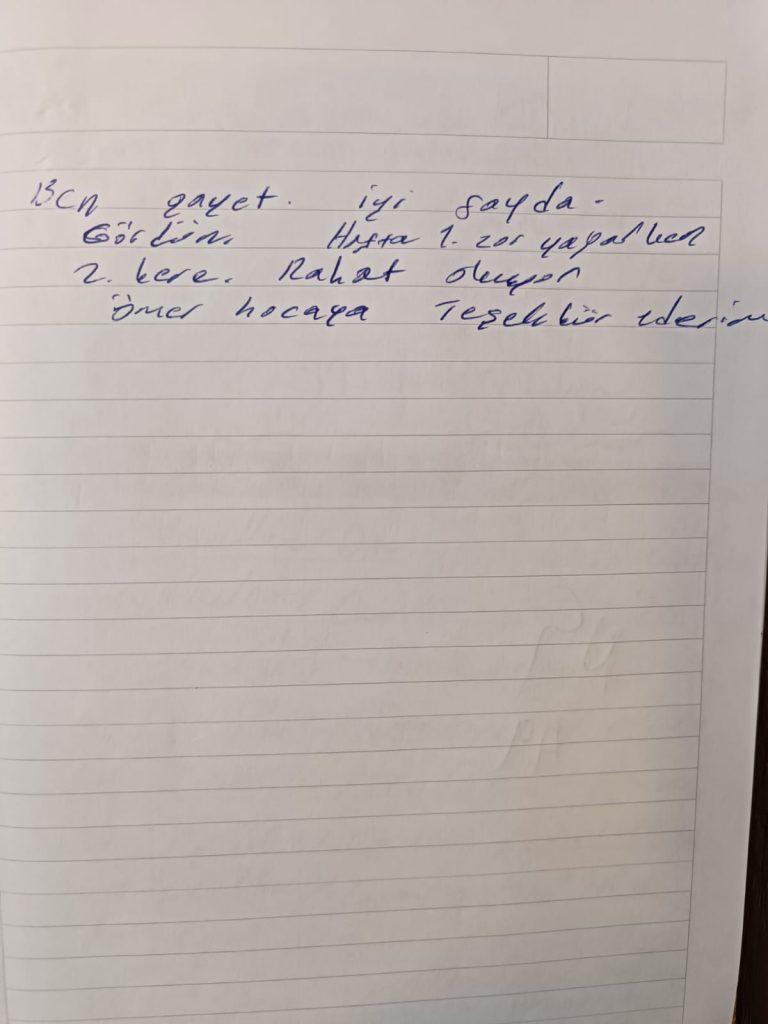 Ben gayet. iyi fayda.
Gördüm. Hafta 1. zor yaparken
2. kere. Rahat oluyor
Ömer hocaya Teşekkür ederim